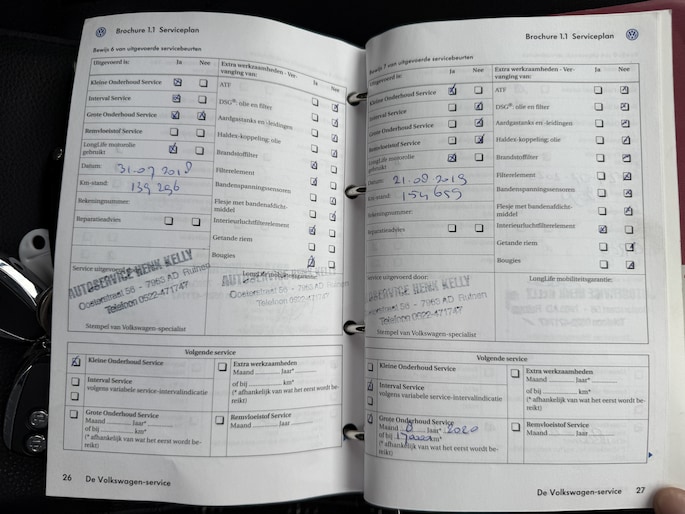 Brochure 1.1 Serviceplan
Bewijs 6 van uitgevoerde servicebeurten
Uitgevoerd is: Ja Nee
Extra werkzaamheden - Vervanging van: Ja Nee
Kleine Onderhoud Service
Interval Service
Grote Onderhoud Service
Remvloeistof Service
LongLife motorolie
gebruikt
Datum: 31-07 2018
Km-stand: 139 296
Rekeningnummer:
Reparatieadvies
ATF
DSG®: olie en filter
Aardgastanks en -leidingen
Haldex-koppeling: olie
Brandstoffilter
Filterelement
Bandenspanningssensoren
Flesje met bandenafdicht-
middel
Interieurluchtfilterelement
Getande riem
Bougies
Service uitgevoerd
AUTOSERVICE HENK KELLY
Oosterstraat 56 - 7963 AD Ruinen
Telefoon 0522-471747
Stempel van Volkswagen-specialist
AUTOSERVICE HENK KELLY
Oosterstraat 56 - 7963 AD Ruinen
Telefoon 0522-471747
Volgende service
Kleine Onderhoud Service
Interval Service
volgens variabele service-intervalindicatie
Grote Onderhoud Service
Maand Jaar*
of bij km*
(* afhankelijk van wat het eerst wordt be-
reikt)
Extra werkzaamheden
Maand Jaar*
of bij km*
(* afhankelijk van wat het eerst wordt be-
reikt)
Remvloeistof Service
Maand Jaar
26 De Volkswagen-service
Brochure 1.1 Serviceplan
Bewijs 7 van uitgevoerde servicebeurten
Uitgevoerd is: Ja Nee
Extra werkzaamheden - Ver-
vanging van: Ja Nee
Kleine Onderhoud Service
Interval Service
Grote Onderhoud Service
Remvloeistof Service
LongLife motorolie
gebruikt
Datum: 21-08 2019
Km-stand: 154 655
Rekeningnummer:
Reparatieadvies
ATF
DSG®: olie en filter
Aardgastanks en -leidingen
Haldex-koppeling: olie
Brandstoffilter
Filterelement
Bandenspanningssensoren
Flesje met bandenafdicht-
middel
Interieurluchtfilterelement
Getande riem
Bougies
Service uitgevoerd door:
AUTOSERVICE HENK KELLY
Oosterstraat 56 - 7963 AD Ruinen
Telefoon 0522-471747
Stempel van Volkswagen-specialist
LongLife mobiliteitsgarantie:
Volgende service
Kleine Onderhoud Service
Interval Service
volgens variabele service-intervalindicatie
Grote Onderhoud Service
Maand 8 Jaar* 2020
of bij km*
(* afhankelijk van wat het eerst wordt be-
reikt)
Extra werkzaamheden
Maand Jaar*
of bij km*
(* afhankelijk van wat het eerst wordt be-
reikt)
Remvloeistof Service
Maand Jaar
De Volkswagen-service 27